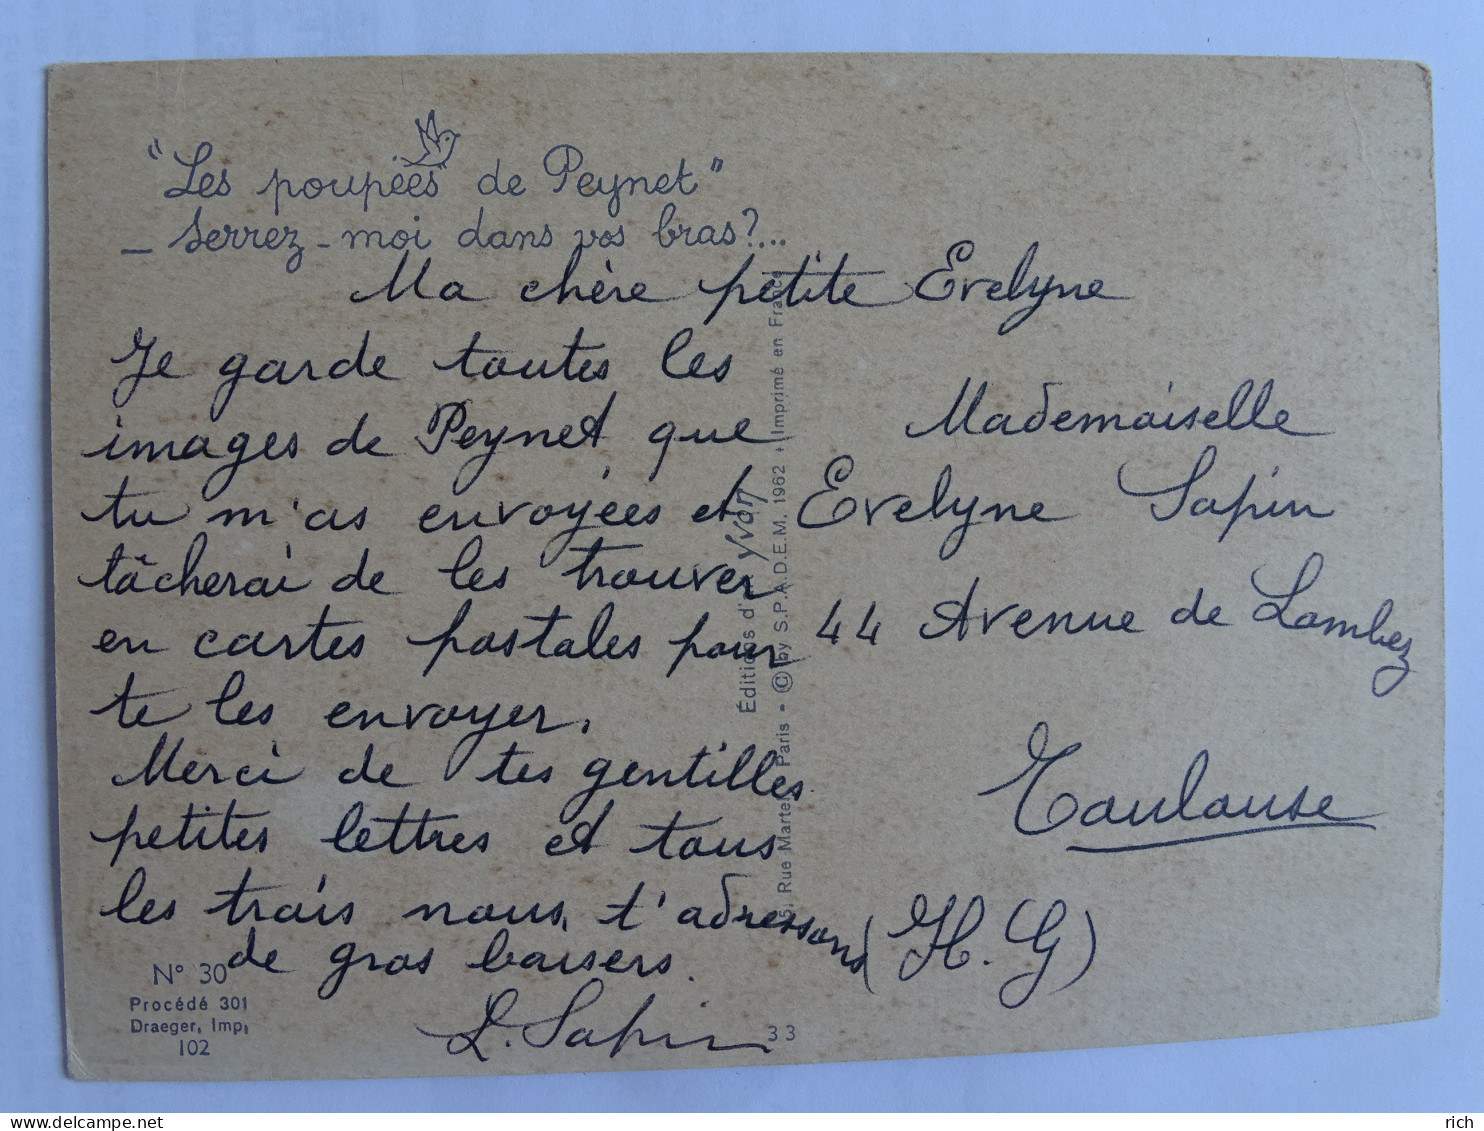 "Les poupées de Peynet"
_ Serrez-moi dans vos bras?...
Ma chère petite Evelyne
Je garde toutes les
images de Peynet que
tu m'as envoyées et
tâcherai de les trouver
en cartes postales pour
te les envoyer.
Merci de tes gentilles
petites lettres et tous
les trois nous t'adressons
de gros baisers.
L. Sapin
N° 30
Procédé 301
Draeger, Imp.
102
Éditions d'Yvon
Rue Martel, Paris - © by S.P.A.D.E.M. 1962 + Imprimé en France
33
Mademoiselle
Evelyne Sapin
44 Avenue de Lombez
Toulouse
(H. G)
delcampe.net
rich